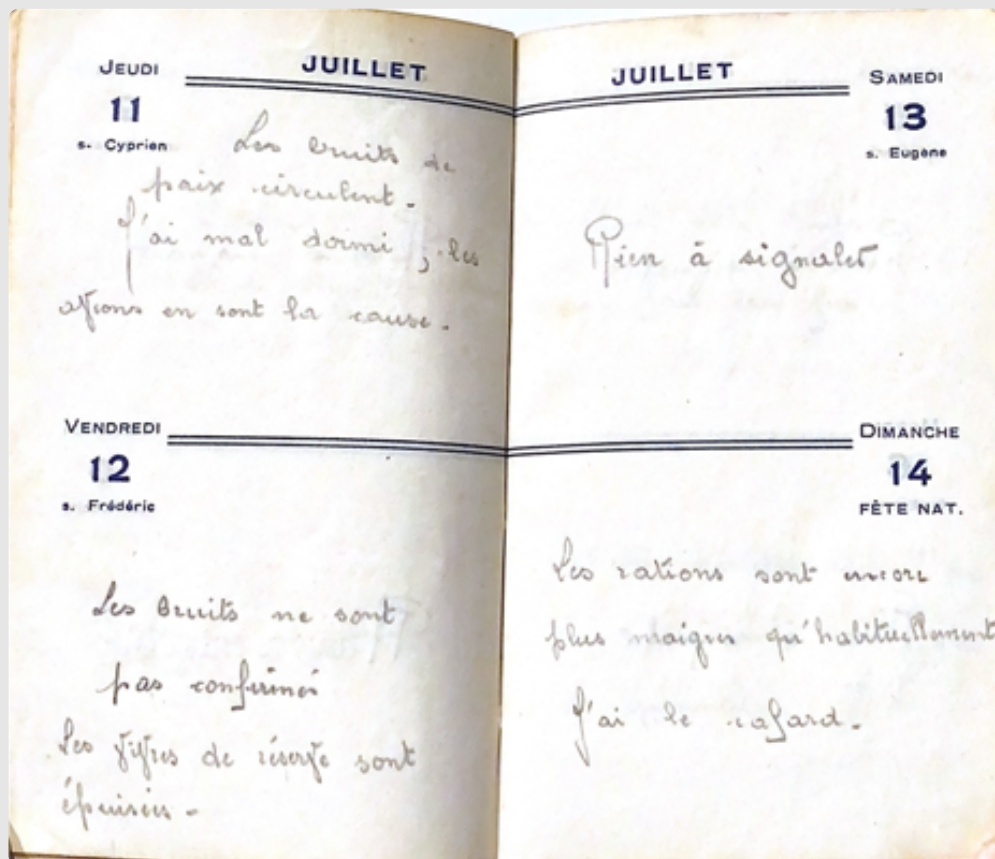 JEUDI
JUILLET
11
s. Cyprien
Les bruits de
paix circulent.
J'ai mal dormi ; les
avions en sont la cause.
VENDREDI
12
s. Frédéric
Les bruits ne sont
pas confirmés
Les vivres de réserve sont
épuisés -
JUILLET
SAMEDI
13
s. Eugène
Rien à signaler
DIMANCHE
14
FÊTE NAT.
Les rations sont encore
plus maigres qu'habituellement
J'ai le cafard.